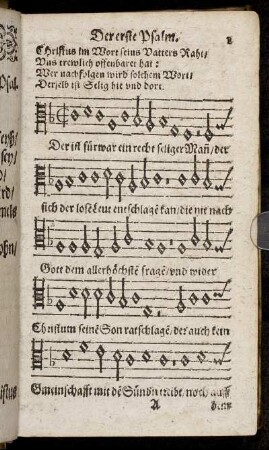 Der erste Psalm.
Christus im Wort seins Vatters Raht/
Vns trewlich offenbaret hat:
Wer nachfolgen wird solchem Wort/
Derselb ist Selig hie vnd dort.
Der ist fürwar ein recht seliger Mañ/ der
sich der losẽ leut entschlagẽ kan/ die nie nach
Gott dem allerhöchstẽ fragẽ/ vnd wider
Christum seinẽ Son ratschlagẽ/ der auch kein
Gmeinschafft mit dẽ Sündn treibt/ noch auff
A